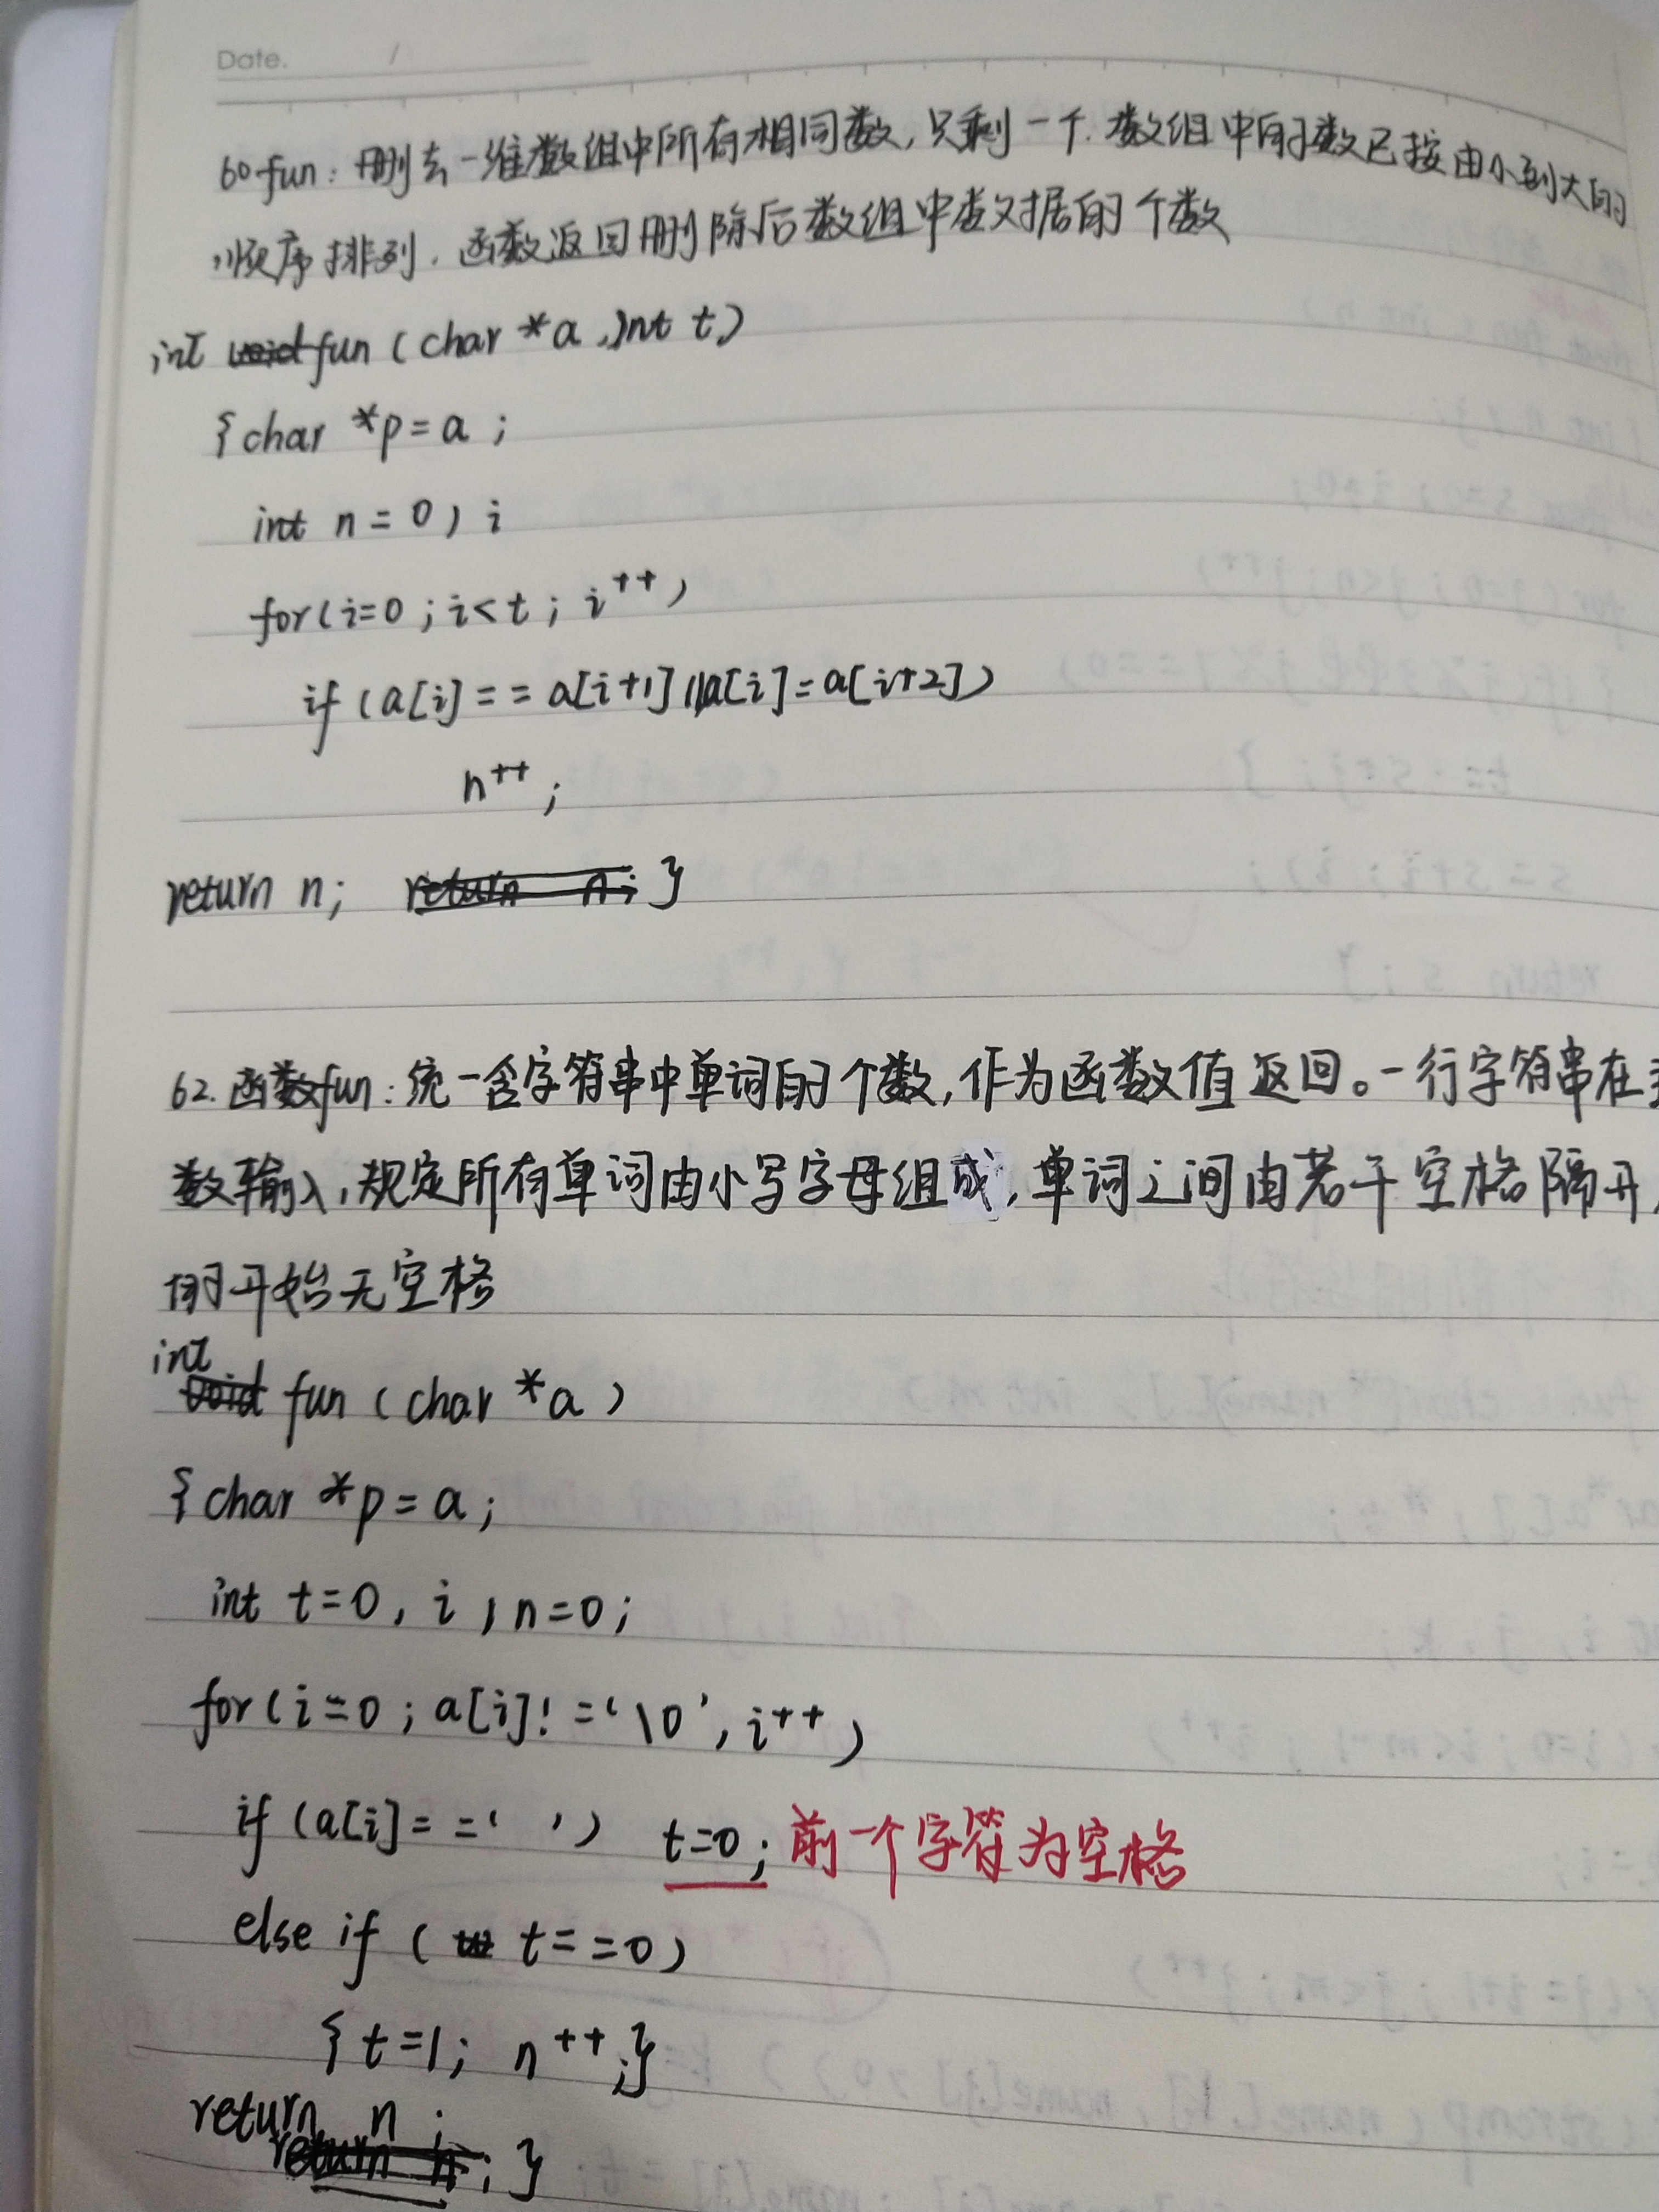 Date. /
60 fun：删去一维数组中所有相同数，只剩一个．数组中的数已按由小到大的
顺序排列．函数返回删除后数组中数据的个数
int fun (char *a, int t)
{char *p=a;
int n=0, i
for(i=0; i<t; i++)
if (a[i]==a[i+1]||a[i]=a[i+2])
n++;
return n; }
62. 函数fun：统一含字符串中单词的个数，作为函数值返回。一行字符串在
数输入，规定所有单词由小写字母组成，单词之间由若干空格隔开，
的开始无空格
int
fun (char *a)
{char *p=a;
int t=0, i, n=0;
for(i=0; a[i]!='\0', i++)
if (a[i]==' ') t=0; 前一个字符为空格
else if ( t==0)
{t=1; n++;}
return n;
}